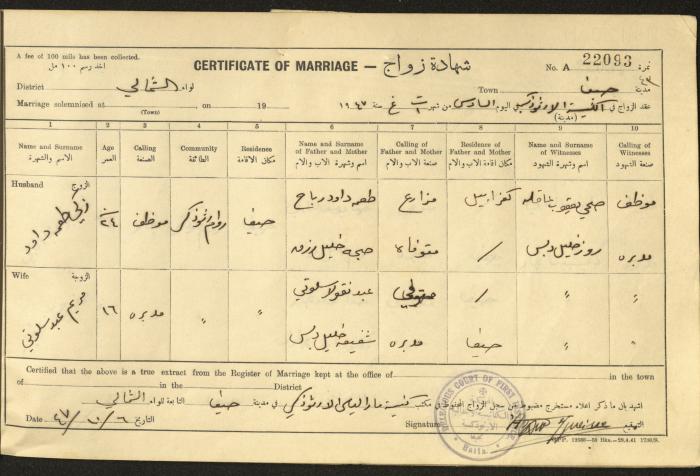 A fee of 100 mils has been collected.
اخذ رسم ١٠٠ مل
CERTIFICATE OF MARRIAGE — شهادة زواج
No. A 22093 نمرة
District لواء الشمالي
Town حيفا مدينة
Marriage solemnised at , on 19
(Town)
عقد الزواج في الكنيسة الارثوذكسية اليوم السادس من شهر سنة ١٩٤٧
(مدينة)
1 2 3 4 5 6 7 8 9 10
Name and Surname
الاسم والشهرة
Age
العمر
Calling
الصنعة
Community
الطائفة
Residence
مكان الاقامة
Name and Surname of Father and Mother
اسم وشهرة الاب والام
Calling of Father and Mother
صنعة الاب والام
Residence of Father and Mother
مكان اقامة الاب والام
Name and Surname of Witnesses
اسم وشهرة الشهود
Calling of Witnesses
صنعة الشهود
Husband الزوج
داود
٢٤
موظف
روم ارثوذكس
حيفا
طعمه داود رباح
مزارع
موظف
متوفاه
/
روز خليل دبس
مدبره
Wife الزوجة
مريم عبد سلوتي
١٦
مدبره
〃
〃
عبد نقولا سلوتي
متوفي
/
〃
〃
شفيقه خليل دبس
مدبره
حيفا
〃
〃
Certified that the above is a true extract from the Register of Marriage kept at the office of in the town
of in the District
اشهد بان ما ذكر اعلاه مستخرج مضبوط من سجل الزواج المحفوظ في مكتب كنيسة مار الياس الارثوذكسي في مدينة حيفا التابعة للواء الشمالي
Date التاريخ ٦/١٠/٤٧
Signature التوقيع
COURT OF FIRST
Haifa